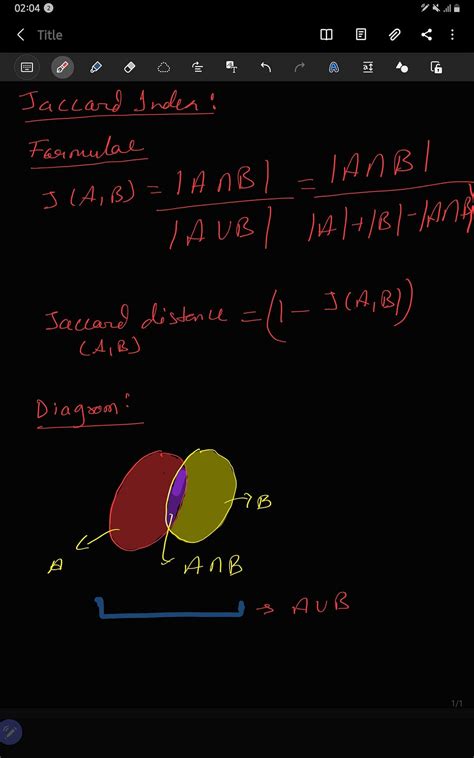 02:04 2
Title
Jaccard Index:
Formulae
J(A,B) = |A∩B| / |A∪B| = |A∩B| / |A|+|B|-|A∩B|
Jaccard distence = (1 - J(A,B))
(A,B)
Diagrom:
B
A
A∩B
A∪B
1/1